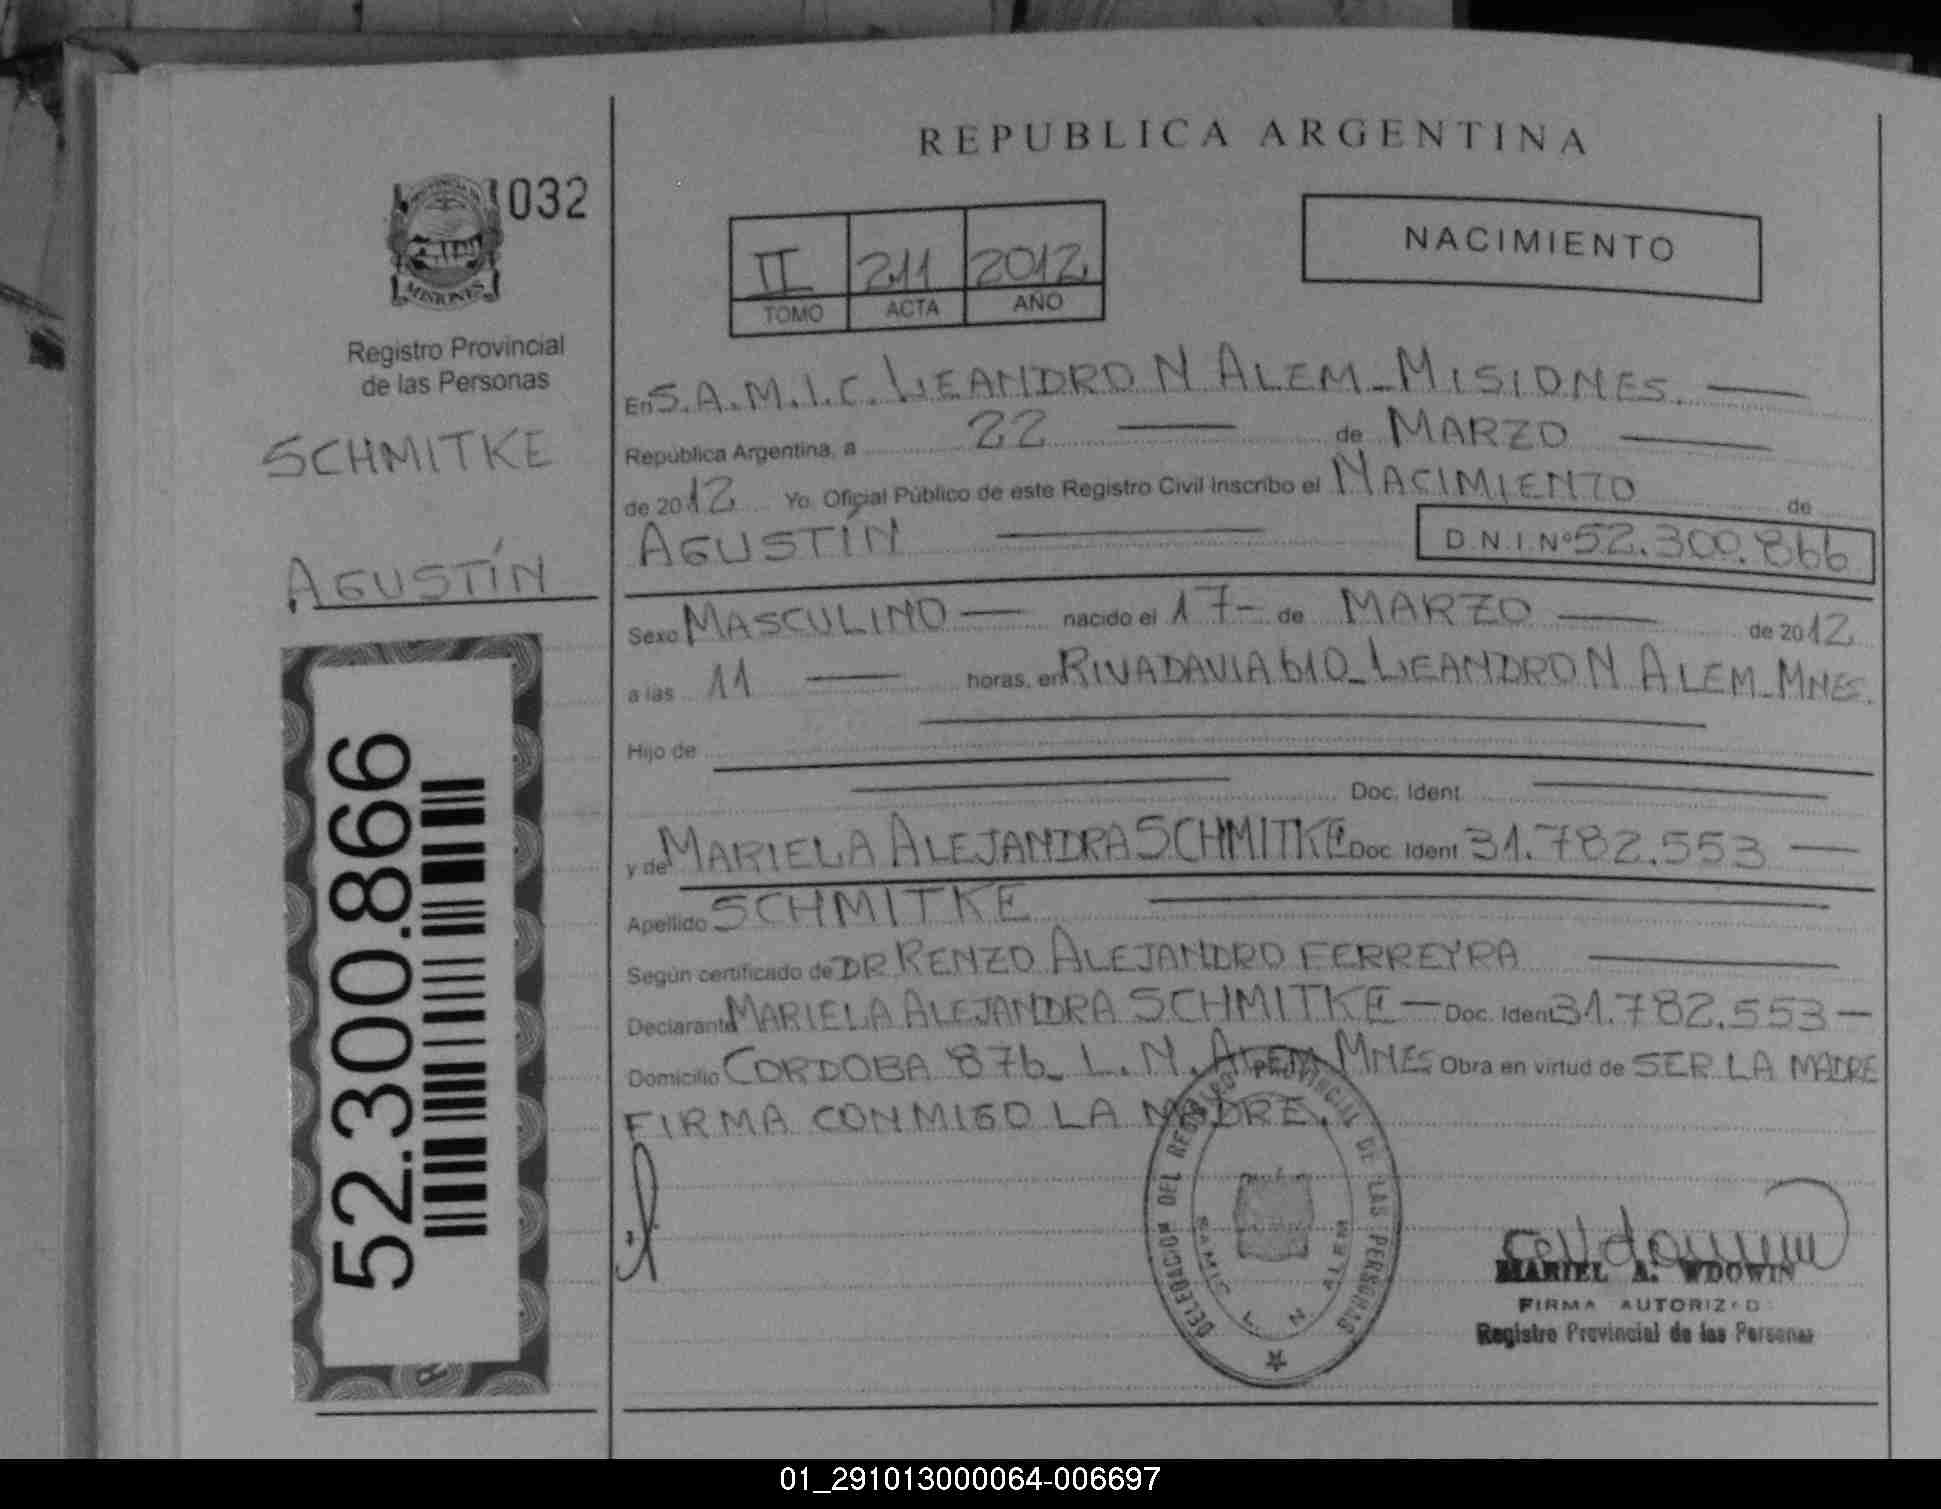 REPUBLICA ARGENTINA
032
MISIONES
Registro Provincial
de las Personas
SCHMITKE
AGUSTÍN
52.300.866
II 211 2012
TOMO ACTA AÑO
NACIMIENTO
En S.A.M.I.C. LEANDRO N ALEM - MISIONES.
República Argentina, a 22 de MARZO
de 2012 Yo, Oficial Público de este Registro Civil Inscribo el NACIMIENTO de
AGUSTÍN D.N.I.Nº 52.300.866
Sexo MASCULINO nacido el 17 - de MARZO de 2012
a las 11 horas, en RIVADAVIA 610 - LEANDRO N ALEM - MNES.
Hijo de
Doc. Ident
y de MARIELA ALEJANDRA SCHMITKE Doc. Ident 31.782.553
Apellido SCHMITKE
Según certificado de DR RENZO ALEJANDRO FERREYRA
Declarante MARIELA ALEJANDRA SCHMITKE - Doc. Ident 31.782.553 -
Domicilio CORDOBA 876 - L.N. ALEM MNES Obra en virtud de SER LA MADRE
FIRMA CONMIGO LA MADRE.
DELEGACION DEL REGISTRO PROVINCIAL DE LAS PERSONAS
SAMIC L. N. ALEM
MARIEL A. WDOWIN
FIRMA AUTORIZAD
Registro Provincial de las Personas
01_291013000064-006697